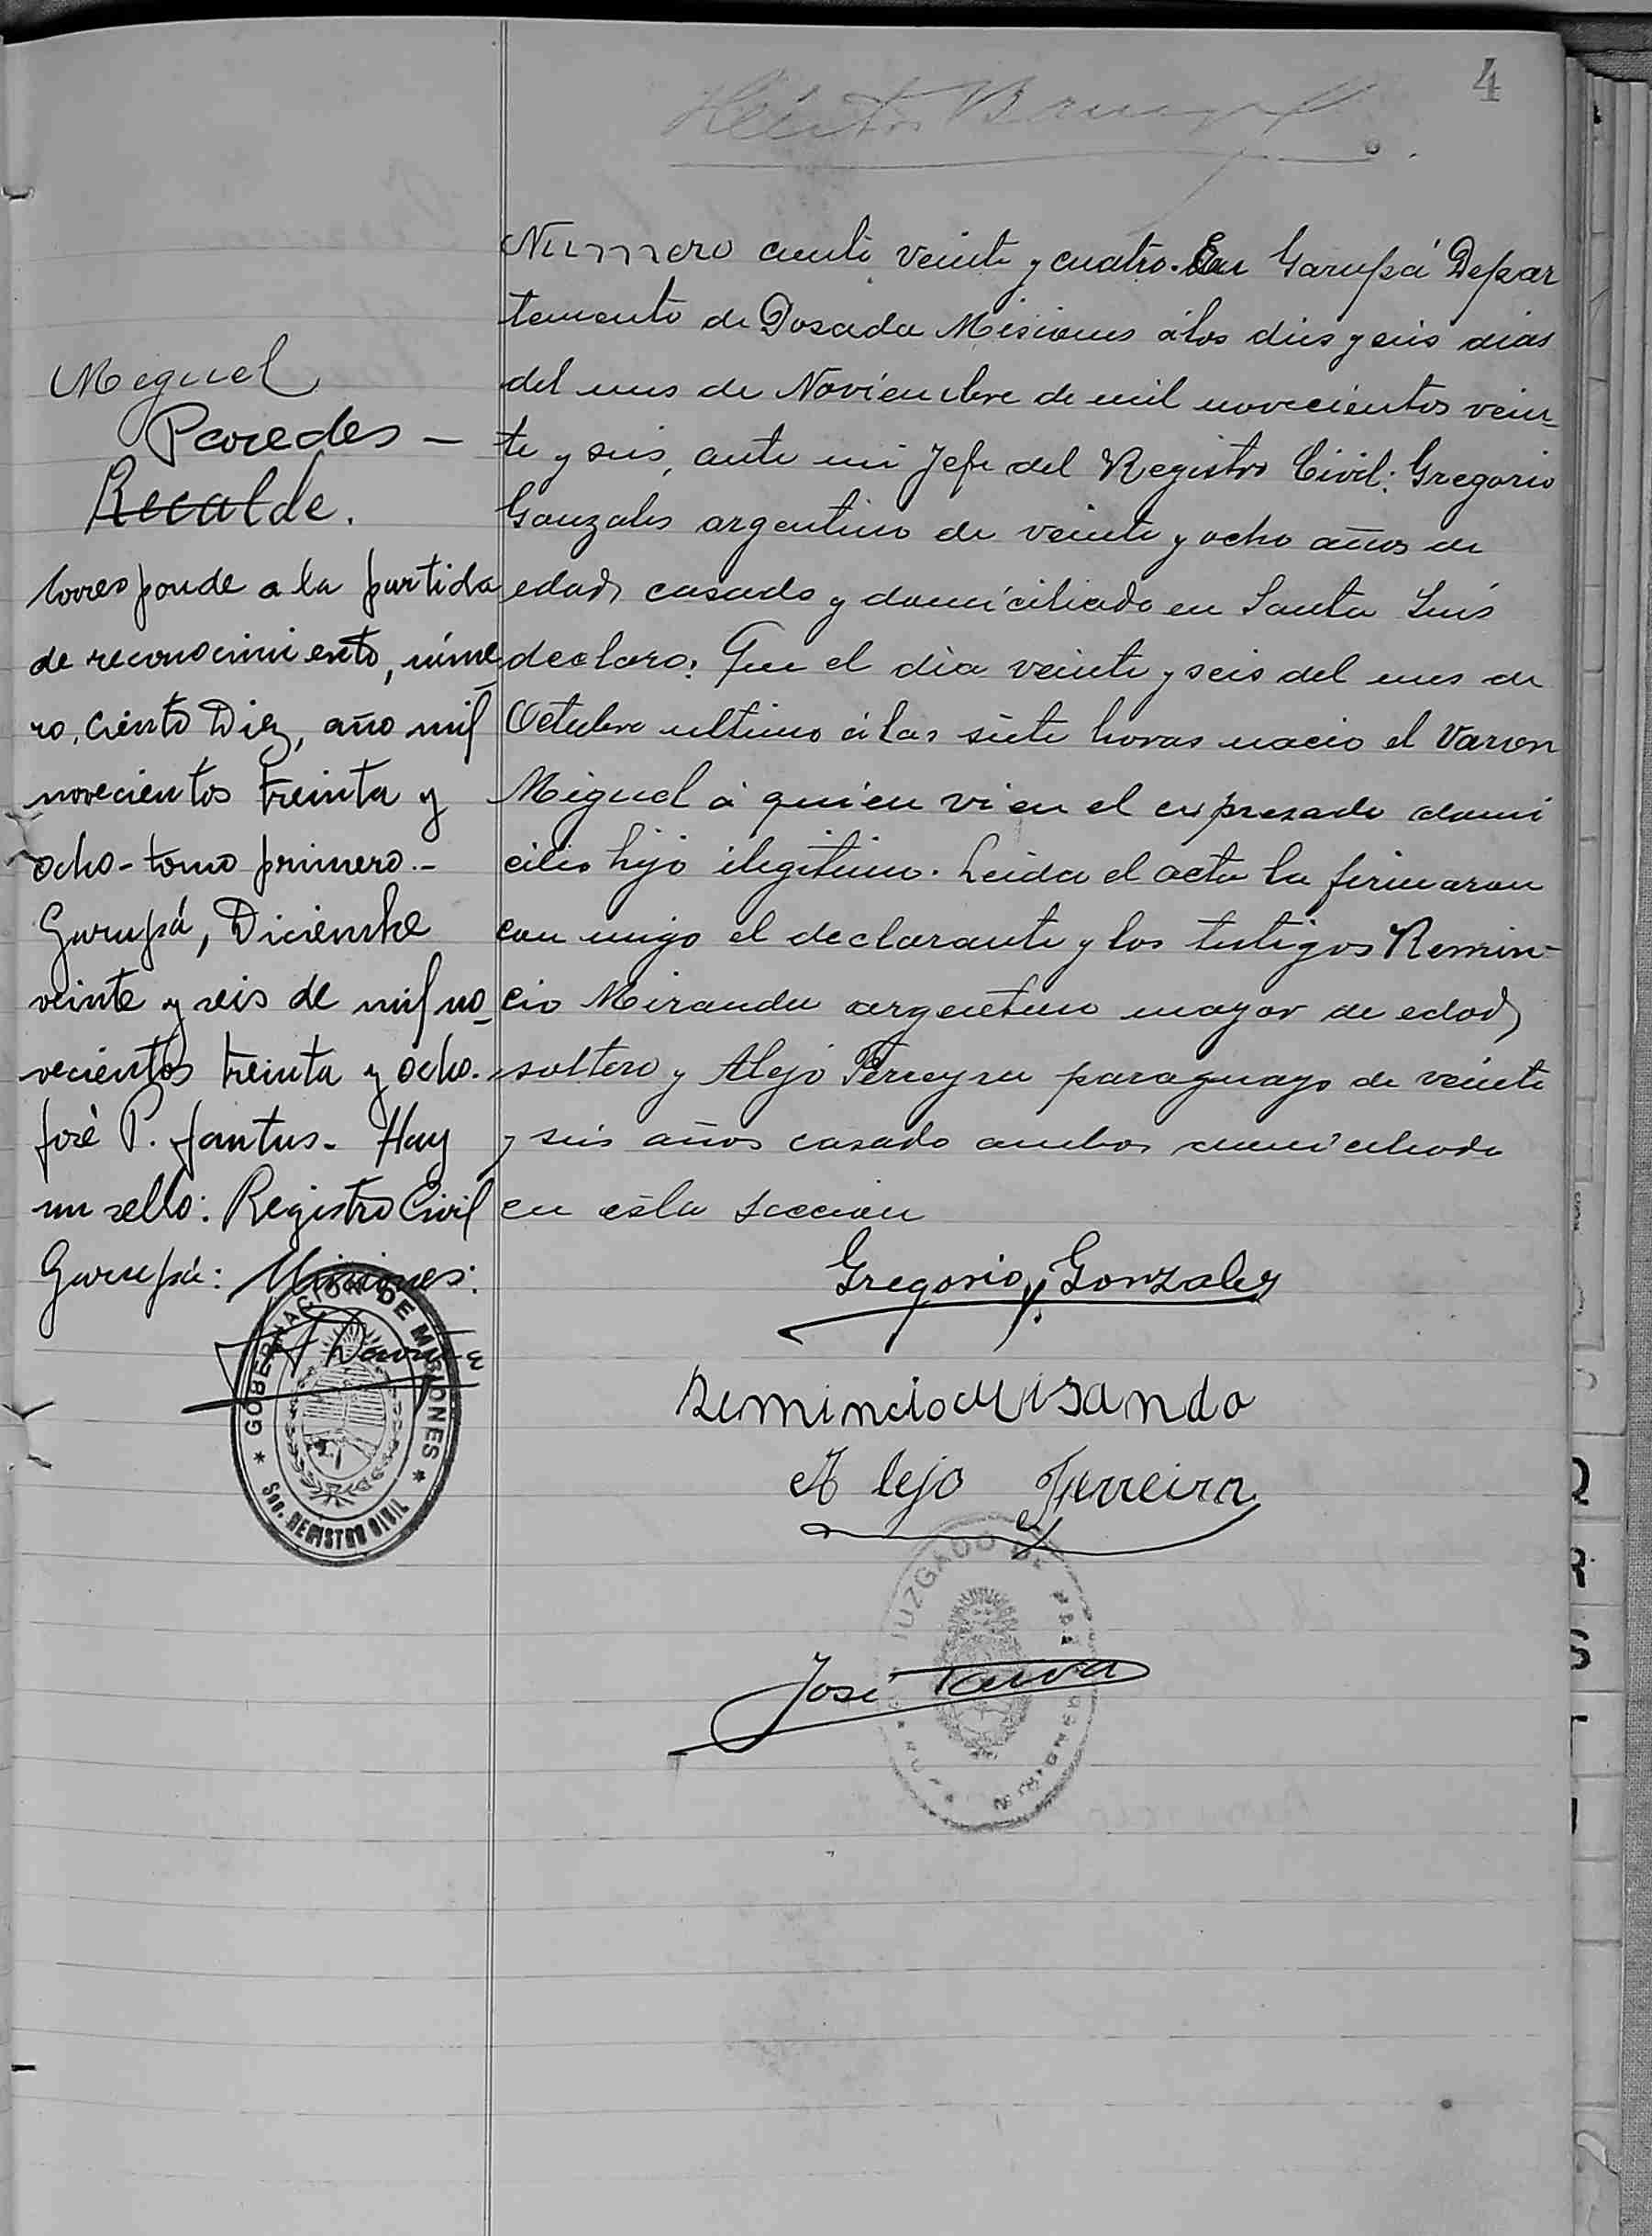 4
Numero ciento veinte y cuatro. En Garupá Depar
tamento de Posada Misiones á los dies y seis dias
del mes de Noviembre de mil novecientos vein-
te y seis, ante mi Jefe del Registro Civil: Gregorio
Gonzales argentino de veinte y ocho años de
edad casado y domiciliado en Santa Luis
declaro: Que el dia veinte y seis del mes de
Octubre ultimo á las siete horas nacio el Varon
Miguel á quien vi en el expresado domi
cilio hijo ilegitimo. Leida el acta la firmaron
con migo el declarante y los testigos Remin-
cio Miranda argentino mayor de edad
soltero y Alejo Ferreyra paraguayo de veinte
y seis años casado ambos domiciliado
en esta seccion
Gregorio Gonzales
Remincio Miranda
Alejo Ferreira
JUZGADO DE PAZ
José
Miguel
Paredes -
Recalde.
Corresponde a la partida
de reconocimiento, núme-
ro, ciento Diez, año mil
novecientos treinta y
ocho - tomo primero.-
Garupá, Diciembre
veinte y seis de mil no-
vecientos treinta y ocho.
José P. Jantus - Hay
un sello: Registro Civil
Garupá: Misiones:
GOBERNACION DE MISIONES
Sec. REGISTRO CIVIL